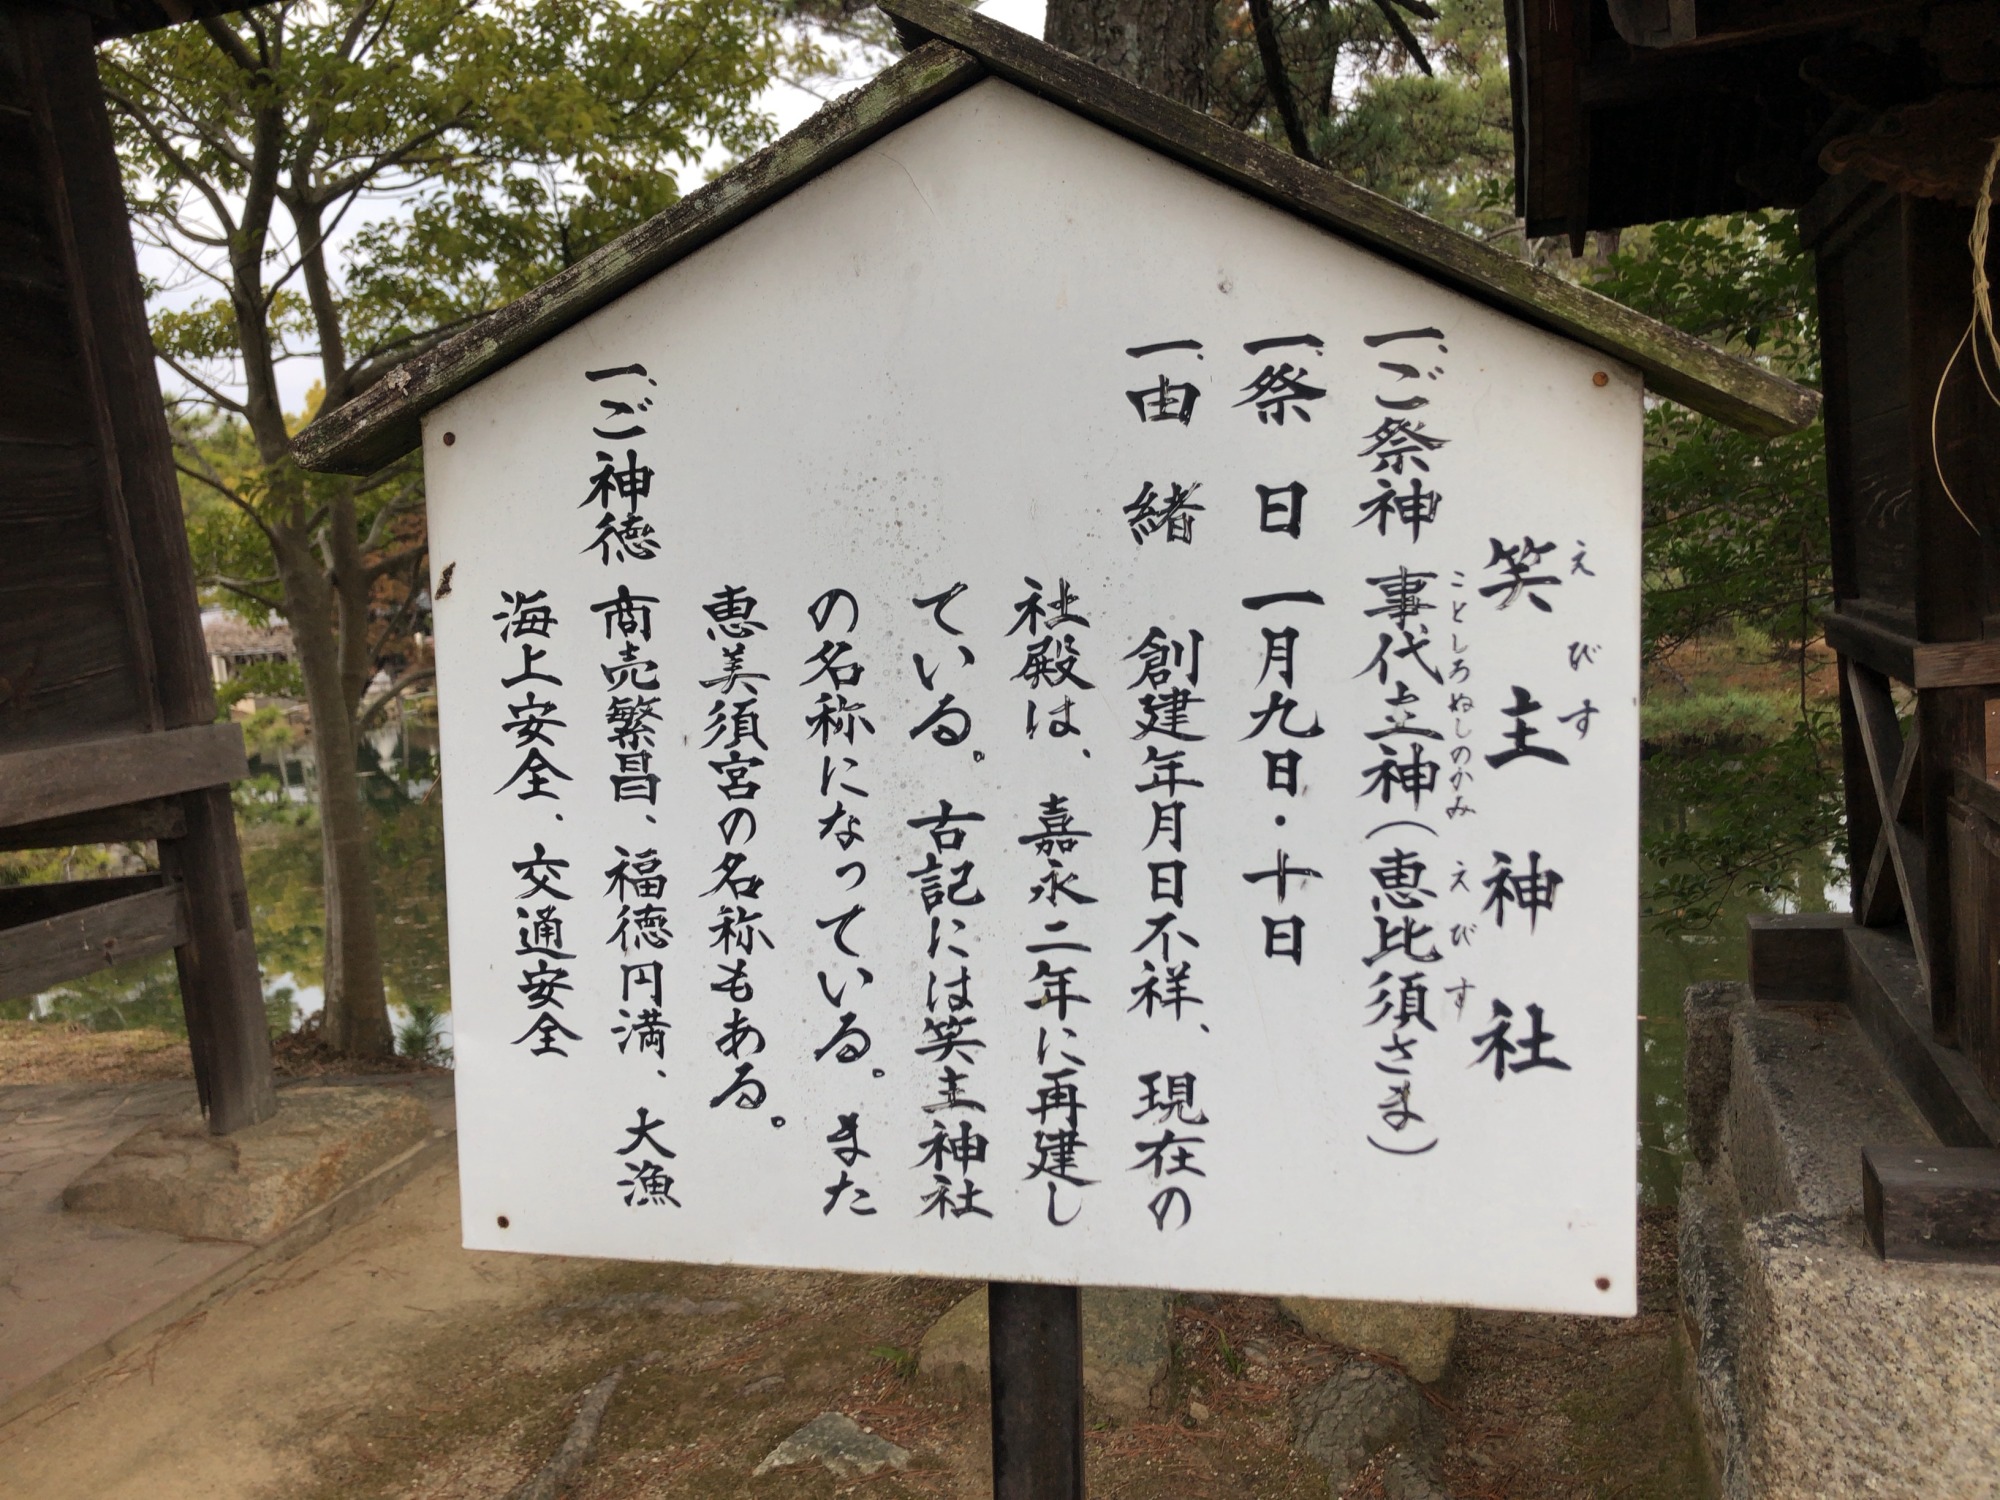 笑主神社
えびす
一、ご祭神 事代主神(恵比須さま)
ことしろぬしのかみ えびす
一、祭日 一月九日・十日
一、由緒 創建年月日不祥、現在の
社殿は、嘉永二年に再建し
ている。古記には笑主神社
の名称になっている。また
恵美須宮の名称もある。
一、ご神徳 商売繁昌、福徳円満、大漁
海上安全、交通安全